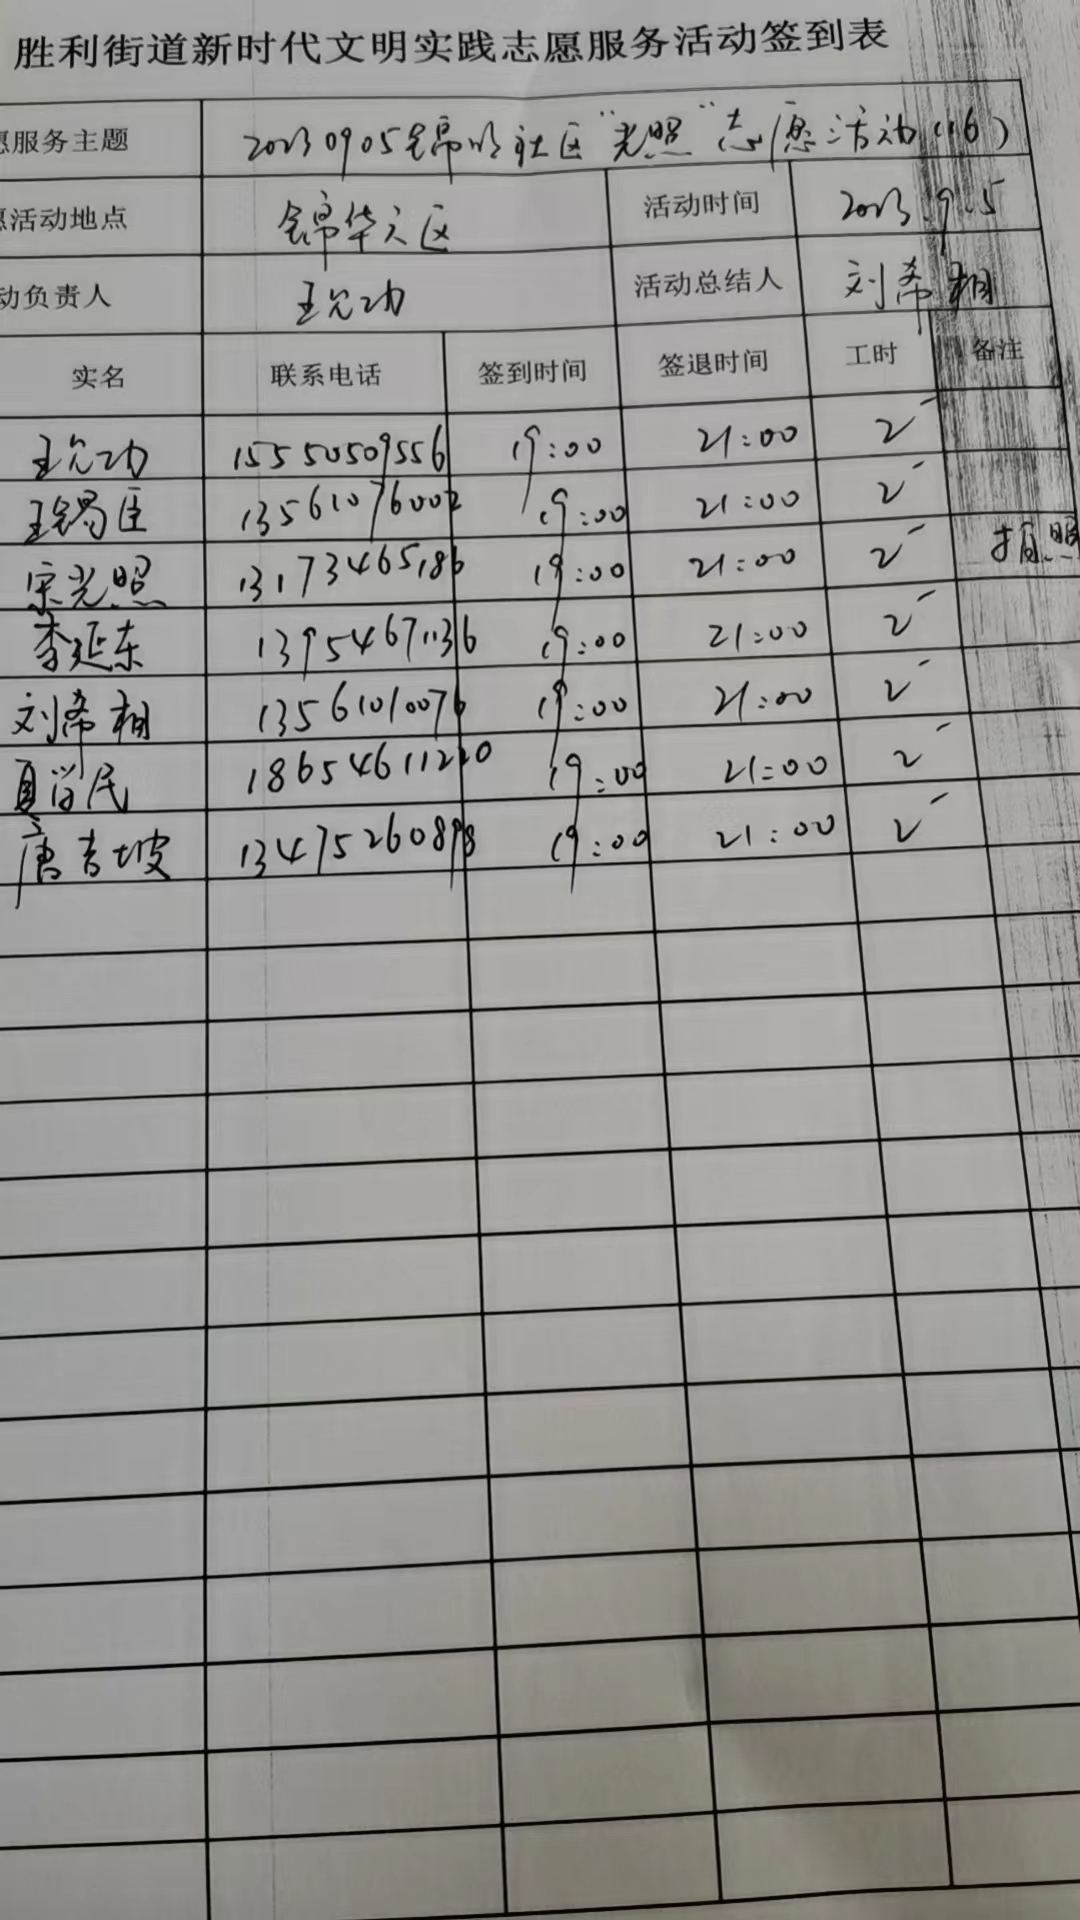 胜利街道新时代文明实践志愿服务活动签到表
愿服务主题 20230905锦华社区“光照”志愿活动(16)
愿活动地点 锦华六区 活动时间 2023.9.5
动负责人 王允功 活动总结人 刘希相
实名 联系电话 签到时间 签退时间 工时 备注
王允功 15550509556 19:00 21:00 2
王锡臣 13561076002 19:00 21:00 2
宋光照 13173465186 19:00 21:00 2 拍照
李延东 13954671136 19:00 21:00 2
刘希相 13561010076 19:00 21:00 2
夏曰民 18654611220 19:00 21:00 2
唐吉坡 13475260898 19:00 21:00 2